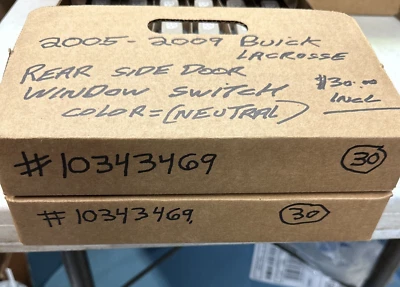 2005-2009 Buick
LACROSSE
REAR SIDE DOOR
WINDOW SWITCH
COLOR=(NEUTRAL)
$30.00
INCL
#10343469
30
#10343469
30